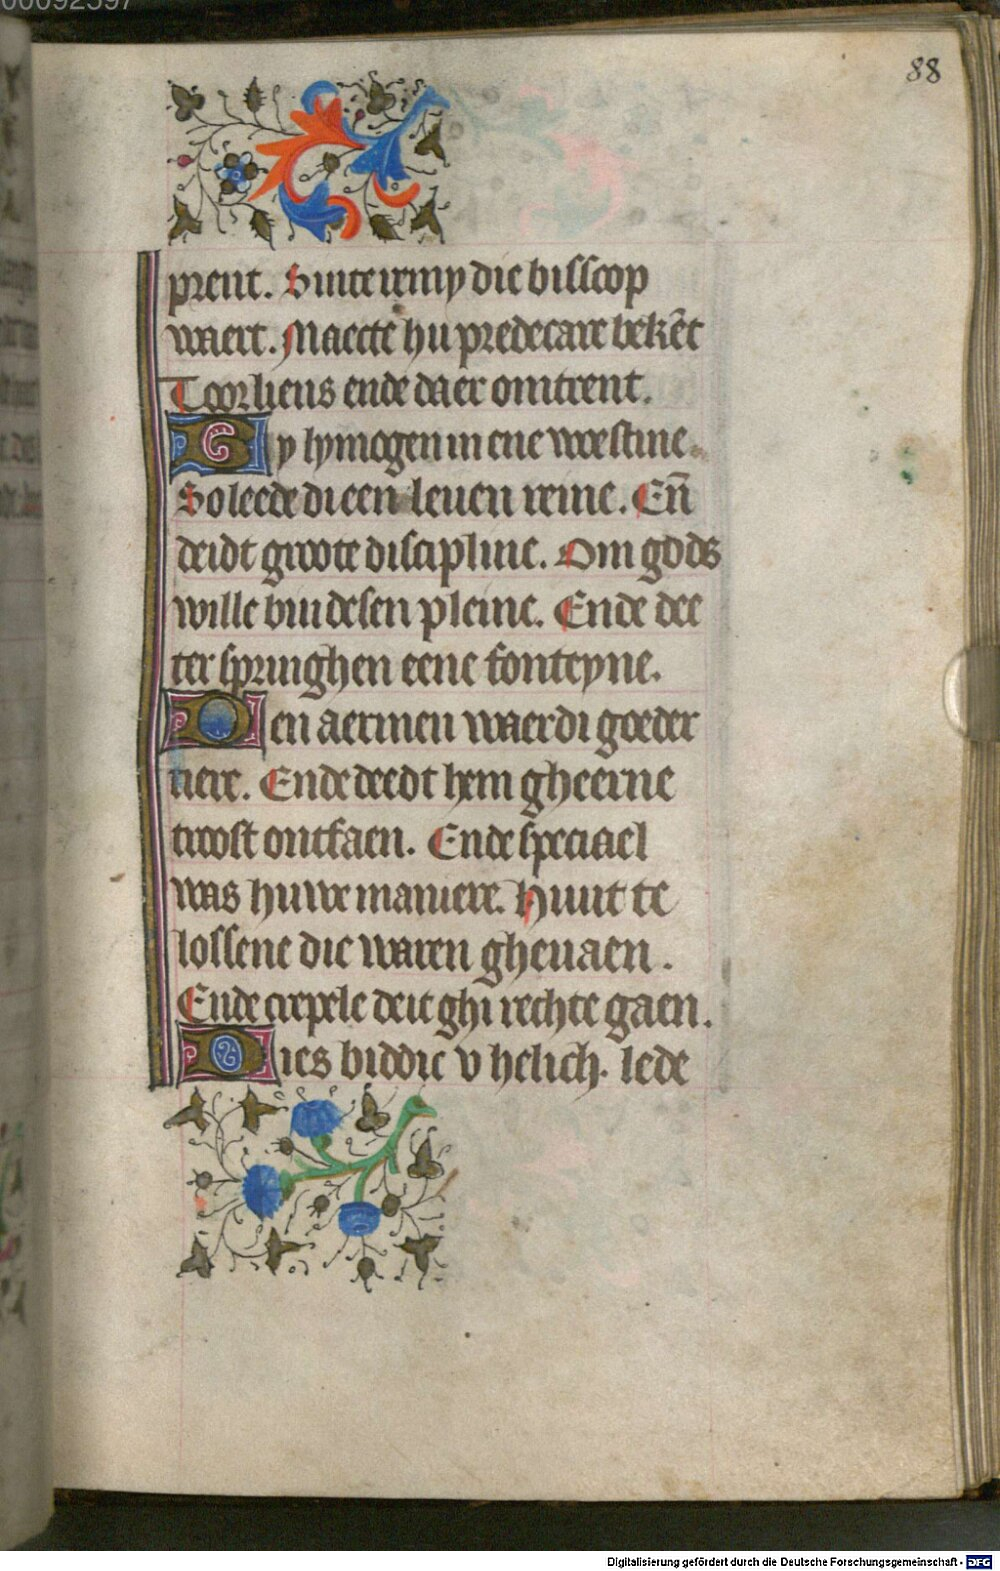 00092597
88
prent. Sinte remy die bisscop
waert. Maecte hu predecare bekēt
Toorliens ende daer omtrent.
Gy lymogen in ene woestine.
So leede di een leuen reine. Eñ
deidt groote discipline. Om gods
wille bin desen pleine. Ende dee
ter springhen eene fonteyne.
Den aermen waerdi goeder
tiere. Ende deedt hem gheerne
troost ontfaen. Ende speciael
was huwe maniere. Huut te
lossene die waren gheuaen.
Ende crepele deit ghi rechte gaen.
Dies biddic v helich. lede
Digitalisierung gefördert durch die Deutsche Forschungsgemeinschaft - DFG